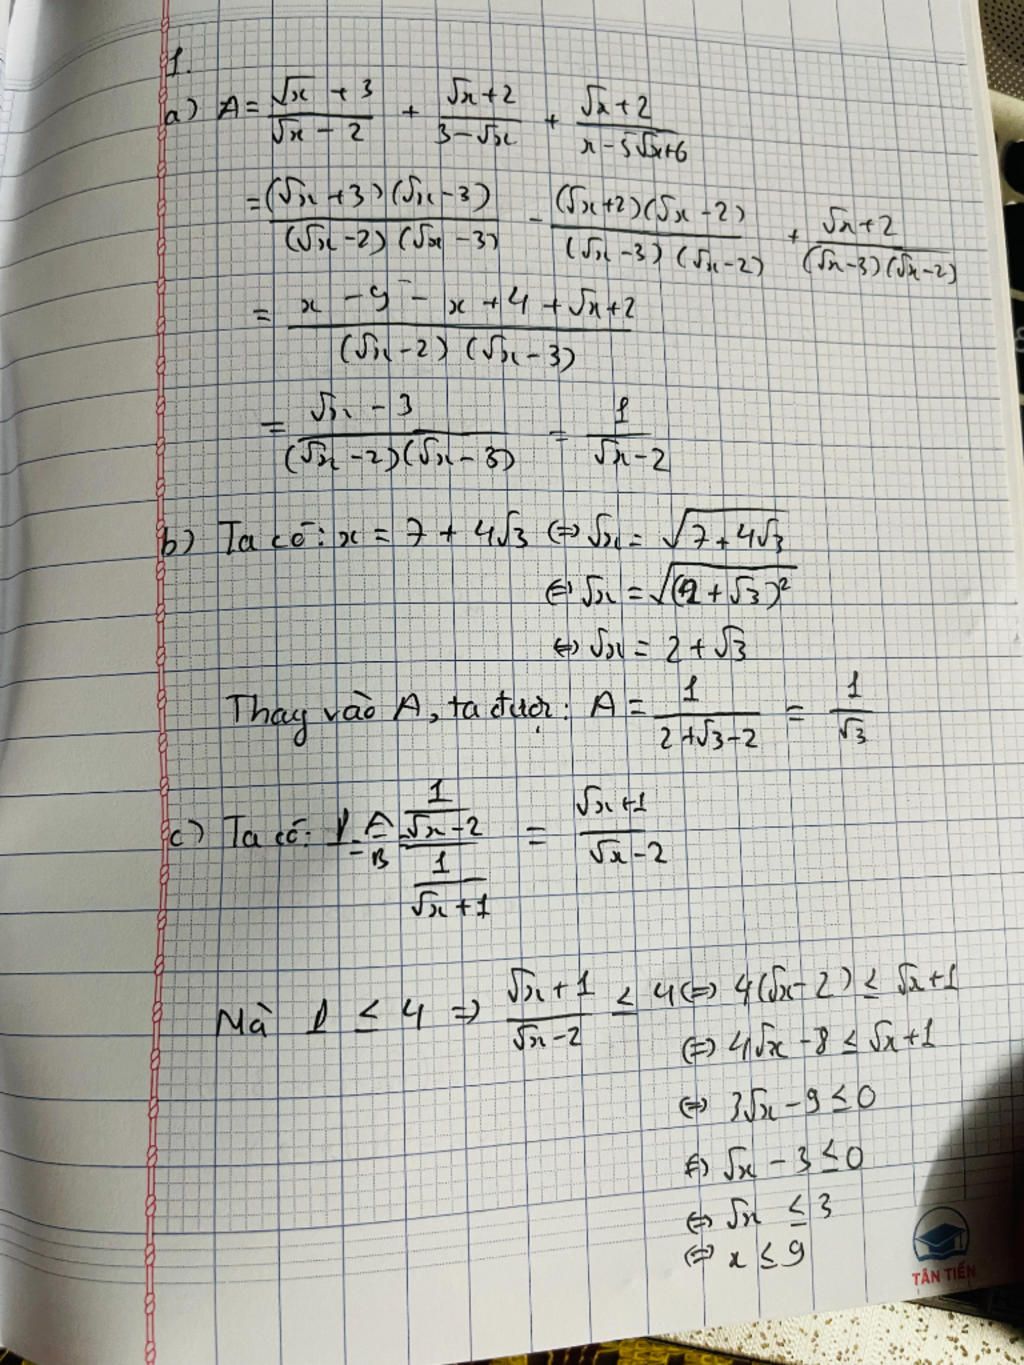 1.
a) A = (√x + 3)/(√x - 2) + (√x + 2)/(3 - √x) + (√x + 2)/(x - 5√x + 6)
= (√x + 3)(√x - 3)/(√x - 2)(√x - 3) - (√x + 2)(√x - 2)/(√x - 3)(√x - 2) + (√x + 2)/(√x - 3)(√x - 2)
= (x - 9 - x + 4 + √x + 2)/(√x - 2)(√x - 3)
= (√x - 3)/(√x - 2)(√x - 3) = 1/(√x - 2)
b) Ta có: x = 7 + 4√3 ⇔ √x = √(7 + 4√3)
⇔ √x = √((2 + √3)²)
⇔ √x = 2 + √3
Thay vào A, ta được: A = 1/(2 + √3 - 2) = 1/√3
c) Ta có: P = A/B = (1/(√x - 2))/(1/(√x + 1)) = (√x + 1)/(√x - 2)
Mà P ≤ 4 ⇒ (√x + 1)/(√x - 2) ≤ 4 ⇔ 4(√x - 2) ≤ √x + 1
⇔ 4√x - 8 ≤ √x + 1
⇔ 3√x - 9 ≤ 0
⇔ √x - 3 ≤ 0
⇔ √x ≤ 3
⇔ x ≤ 9
TÂN TIẾN